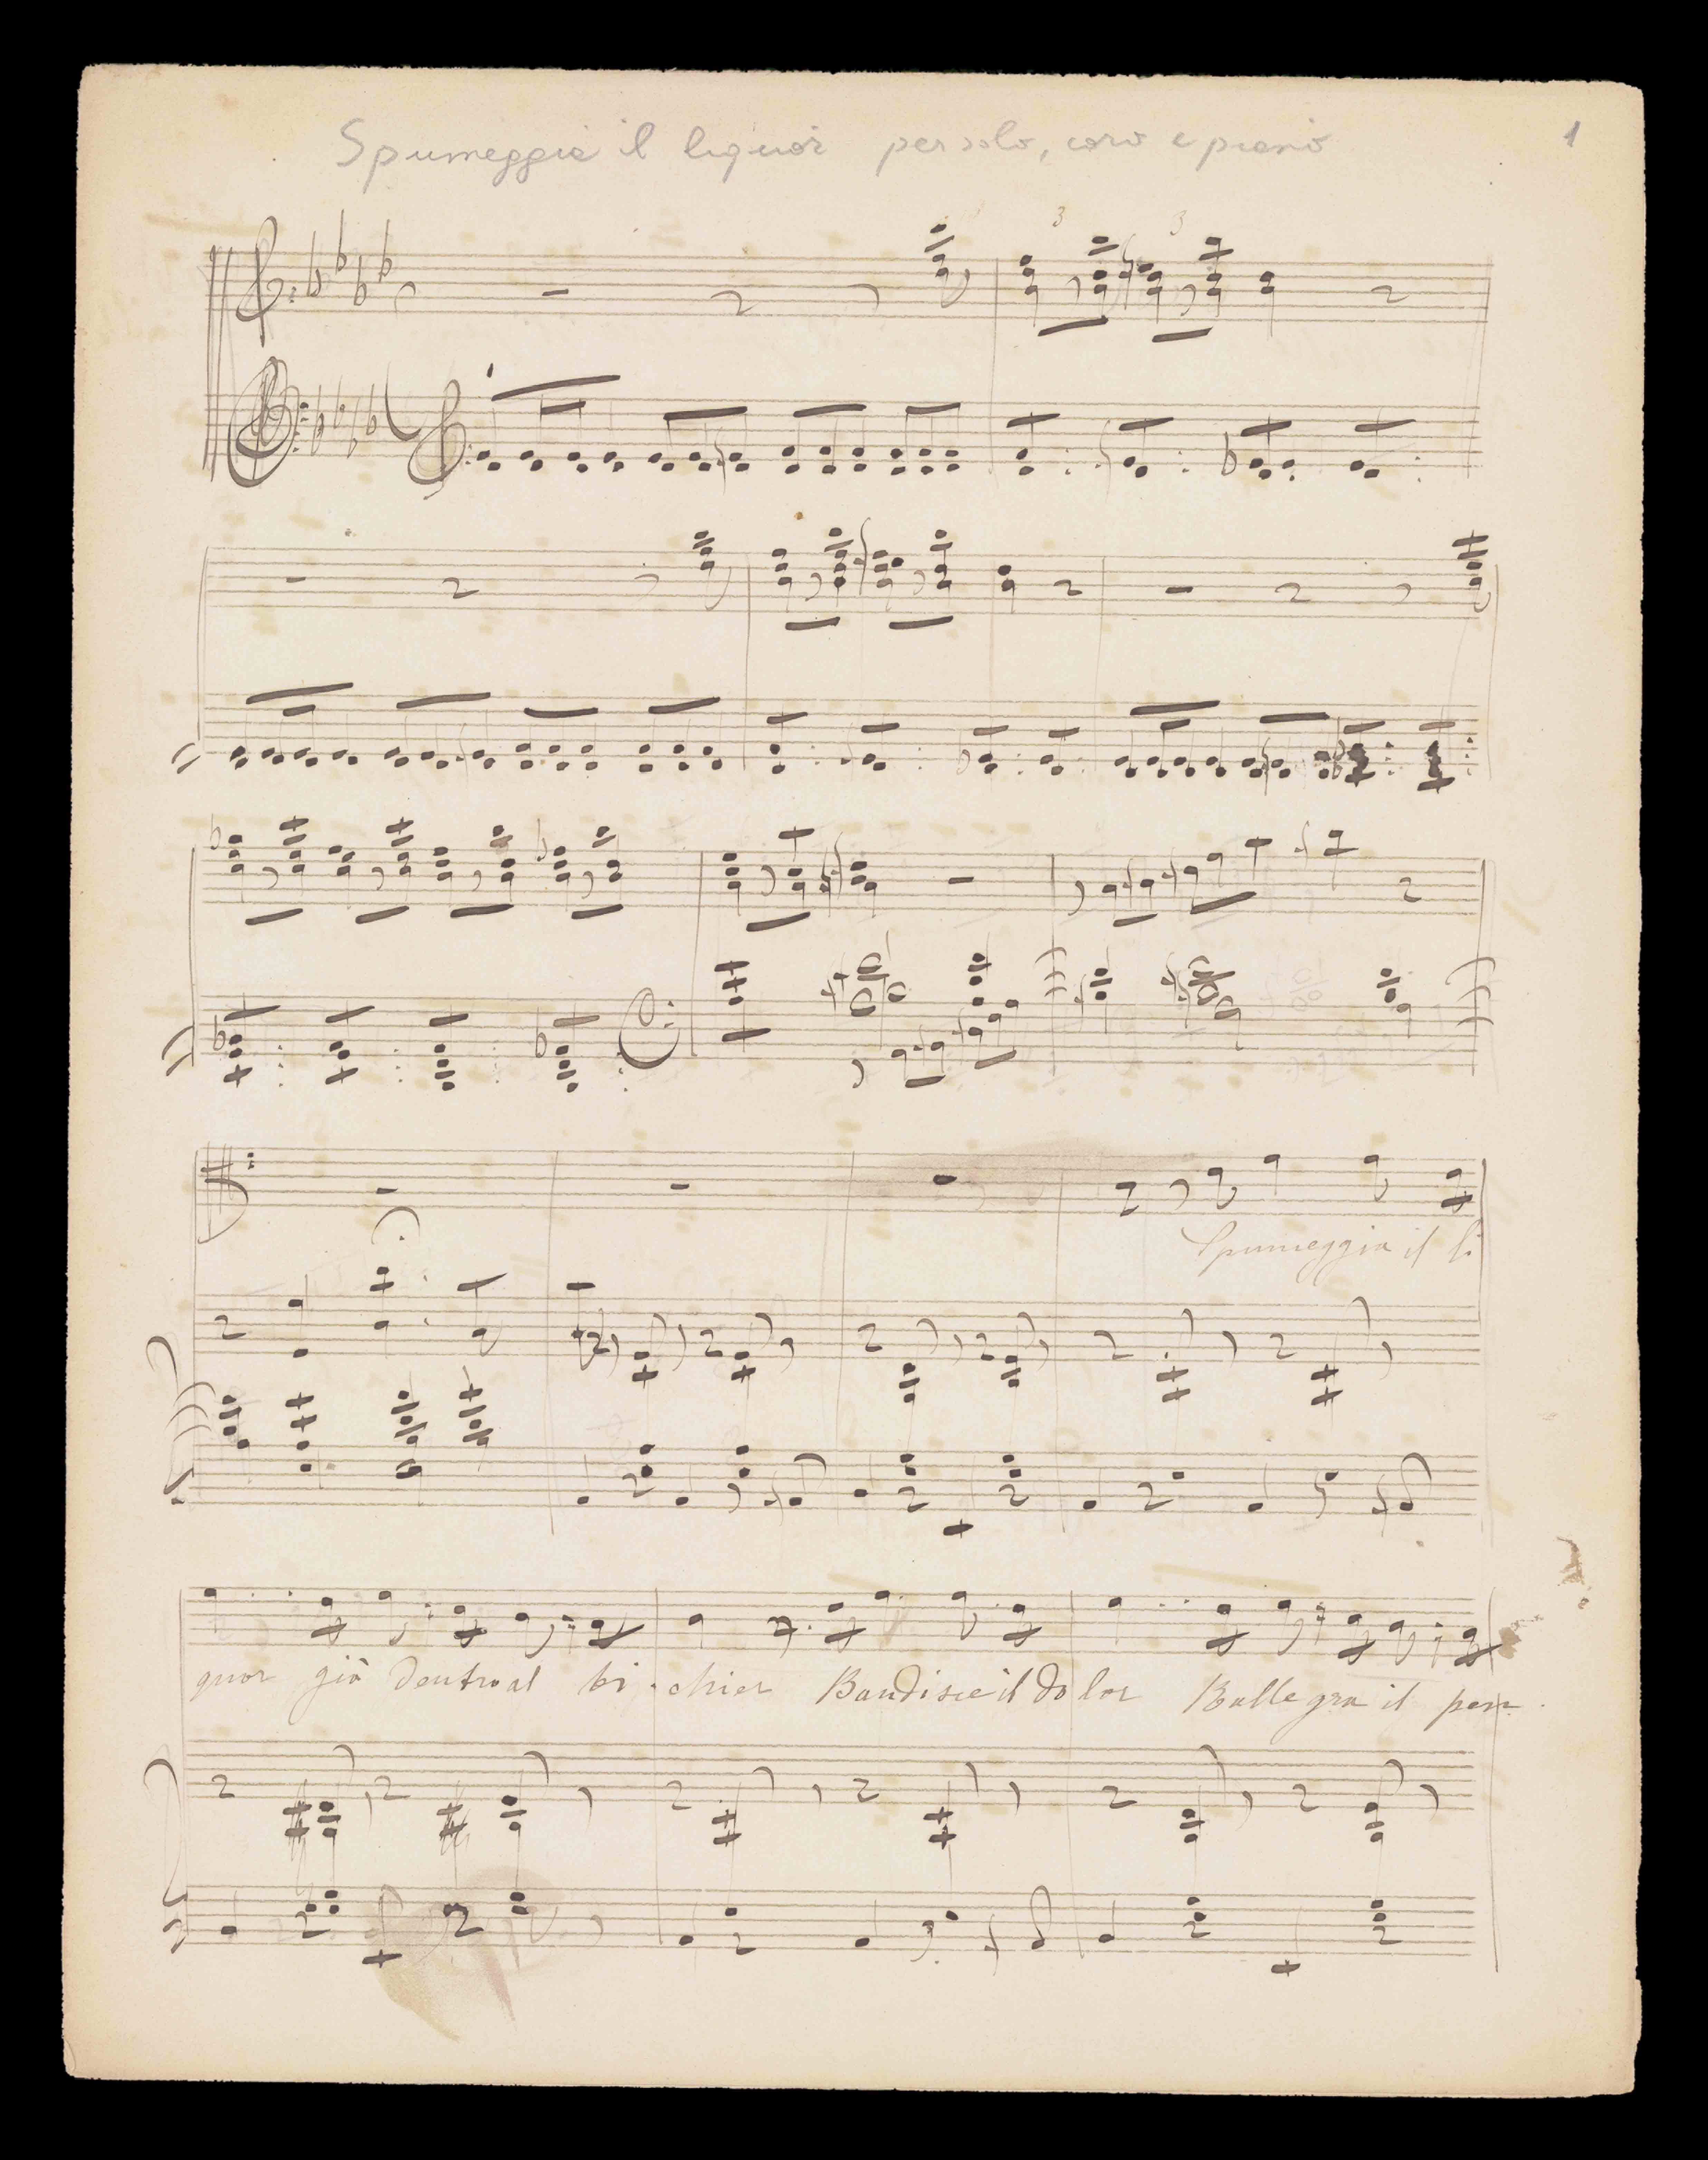 Spumeggia il liquor per solo, coro e piano
1
3 3
Spumeggia il li
quor già dentro al bi. chier Bandisce il do lor Rallegra il pen